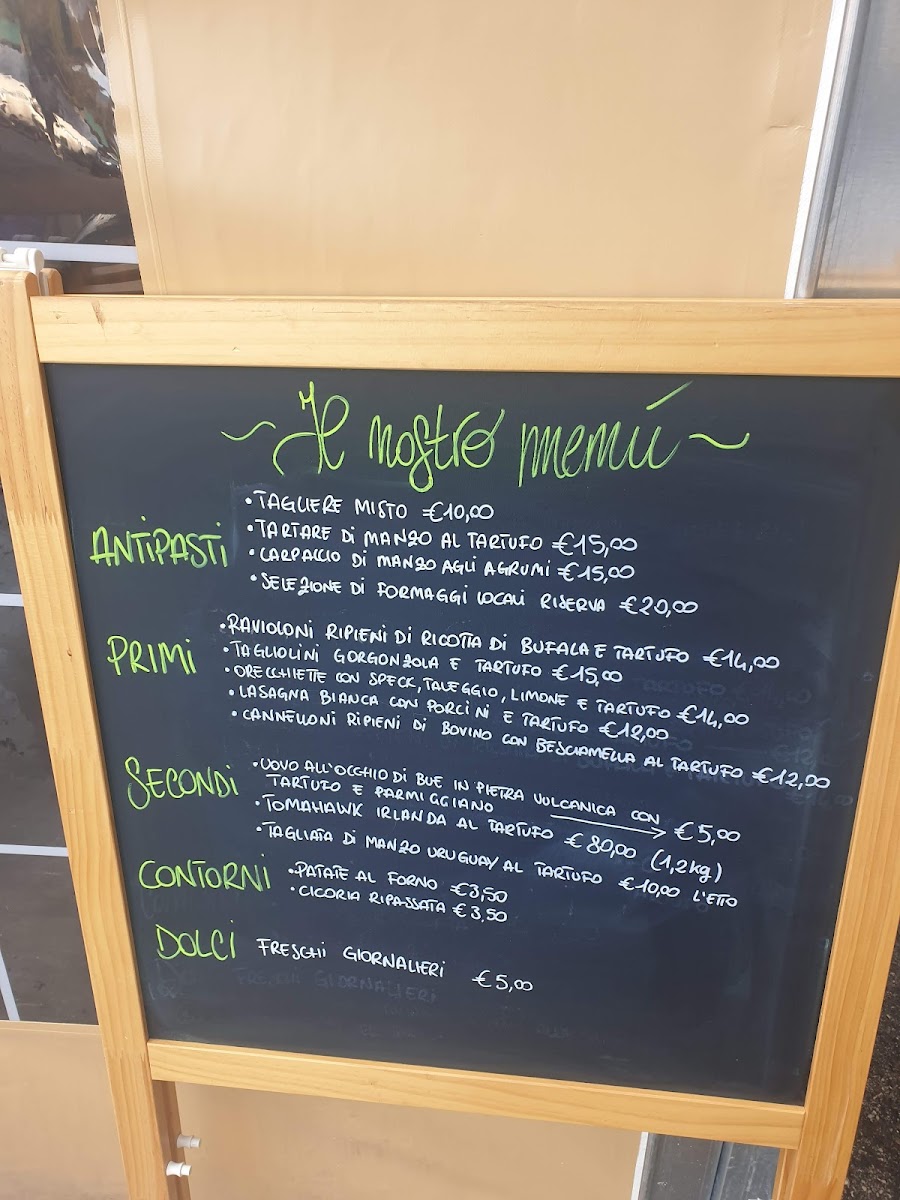 ~ Il nostro menú ~
ANTIPASTI
• TAGLIERE MISTO €10,00
• TARTARE DI MANZO AL TARTUFO €15,00
• CARPACCIO DI MANZO AGLI AGRUMI €15,00
• SELEZIONE DI FORMAGGI LOCALI RISERVA €20,00
PRIMI
• RAVIOLONI RIPIENI DI RICOTTA DI BUFALA E TARTUFO €14,00
• TAGLIOLINI GORGONZOLA E TARTUFO €15,00
• ORECCHIETTE CON SPECK, TALEGGIO, LIMONE E TARTUFO €14,00
• LASAGNA BIANCA CON PORCINI E TARTUFO €12,00
• CANNELLONI RIPIENI DI BOVINO CON BESCIAMELLA AL TARTUFO €12,00
SECONDI
• UOVO ALL'OCCHIO DI BUE IN PIETRA VULCANICA CON
TARTUFO E PARMIGGIANO → €5,00
• TOMAHAWK IRLANDA AL TARTUFO €80,00 (1,2kg)
• TAGLIATA DI MANZO URUGUAY AL TARTUFO €10,00 L'ETTO
CONTORNI
• PATATE AL FORNO €3,50
• CICORIA RIPASSATA €3,50
DOLCI FRESCHI GIORNALIERI €5,00
FRESCHI GIORNALIERI